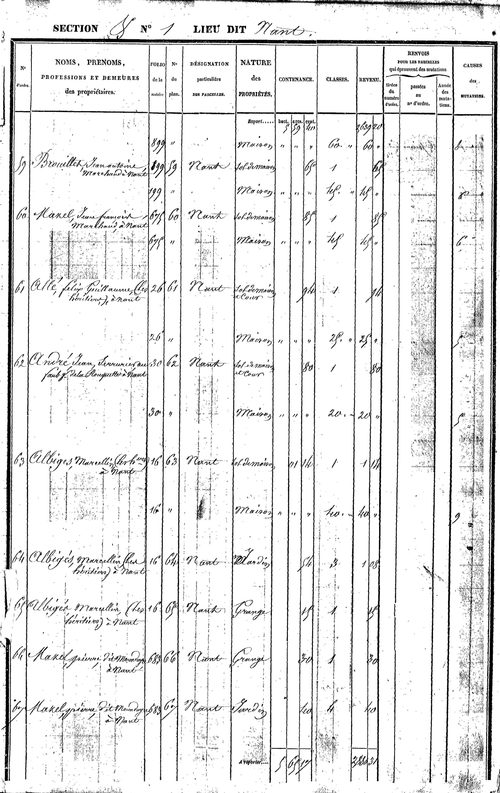 SECTION N° 1 LIEU DIT Nant.
N° d'ordre.
NOMS, PRENOMS, PROFESSIONS ET DEMEURES des propriétaires.
FOLIO de la matrice
N° du plan.
DÉSIGNATION particulière DES PARCELLES.
NATURE des PROPRIÉTÉS.
CONTENANCE.
CLASSES.
REVENU.
RENVOIS POUR LES PARCELLES qui éprouvent des mutations
tirées du numéro d'ordre.
passées au n° d'ordre.
Année des mutations.
CAUSES des MUTATIONS.
hect. ares. cent.
Report.... 5 59 40 2639 20
899 " Maison " " " 60 " 60 "
59 Brouillet, Jean antoine 899 59 Nant Sol de maison 65 1 65
Marchand à Nant
199 " Maison " " " 45 " 45 " 8
60 Maxel, Jean françois 675 60 Nant Sol de maison 85 1 85
Marchand, à Nant
675 " Maison " " " 45 45 " 6
61 Allé, felix Guillaume, (les 26 61 Nant Sol de maison 94 1 94
héritiers), à Nant et Cour
26 " Maison " " " 25 " 25 " 5
62 André Jean, Serrurier au 30 62 Nant Sol de maison 80 1 80
faub. de la Rouquette à Nant et Cour
30 " Maison " " " 20 " 20 " 5
63 Albiges Marcellin (les hers) 16 63 Nant Sol de maison 01 14 1 1 14
à Nant
16 " Maison " " " 40 " 40 " 9
64 Albigès, Marcellin (les 16 64 Nant Jardin 54 3 1 08
héritiers) à Nant
65 Albigès Marcellin, (les 16 65 Nant Grange 15 1 15
héritiers) à Nant
66 Maxel, pierre, dit 683 66 Nant Grange 30 1 30
à Nant
67 Maxel, pierre, dit 683 67 Nant Jardin 40 4 40
à Nant
A reporter.... 5 65 17